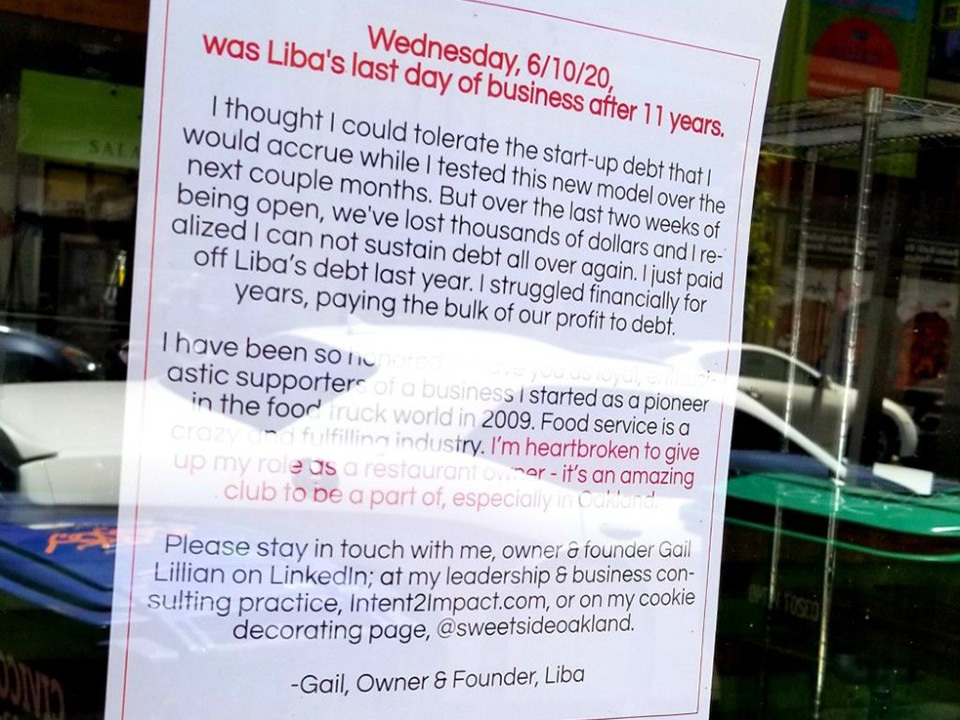 Wednesday, 6/10/20,
was Liba's last day of business after 11 years.
I thought I could tolerate the start-up debt that I
would accrue while I tested this new model over the
next couple months. But over the last two weeks of
being open, we've lost thousands of dollars and I re-
alized I can not sustain debt all over again. I just paid
off Liba's debt last year. I struggled financially for
years, paying the bulk of our profit to debt.
I have been so honored to have you as loyal, enthusi-
astic supporters of a business I started as a pioneer
in the food truck world in 2009. Food service is a
crazy and fulfilling industry. I'm heartbroken to give
up my role as a restaurant owner - it's an amazing
club to be a part of, especially in Oakland.
Please stay in touch with me, owner & founder Gail
Lillian on LinkedIn; at my leadership & business con-
sulting practice, Intent2Impact.com, or on my cookie
decorating page, @sweetsideoakland.
-Gail, Owner & Founder, Liba